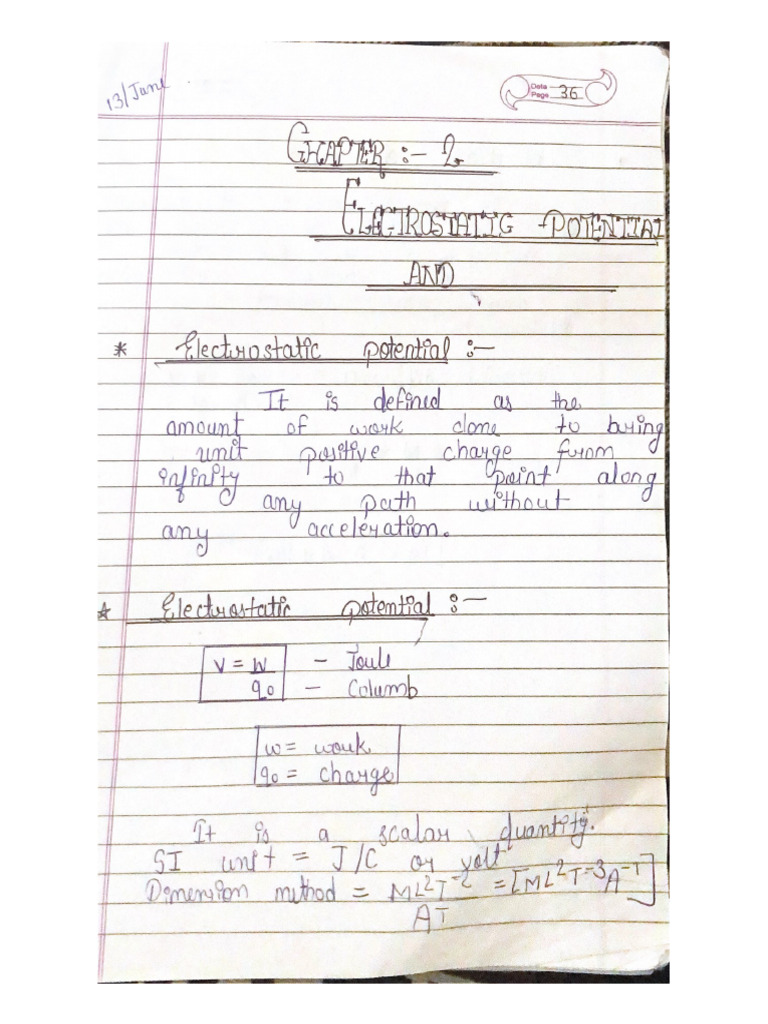 13/June
Date
Page 36
CHAPTER :- 2
ELECTROSTATIC POTENTIAL
AND
* Electrostatic potential :-
It is defined as the
amount of work done to bring
unit positive charge from
infinity to that point along
any path without
any acceleration.
* Electrostatic potential :-
V = W - Joule
q0 - Columb
w = work
q0 = charge
It is a scalar quantity.
SI unit = J/C or volt
Dimension method = ML²T⁻² = [ML²T⁻³A⁻¹]
AT